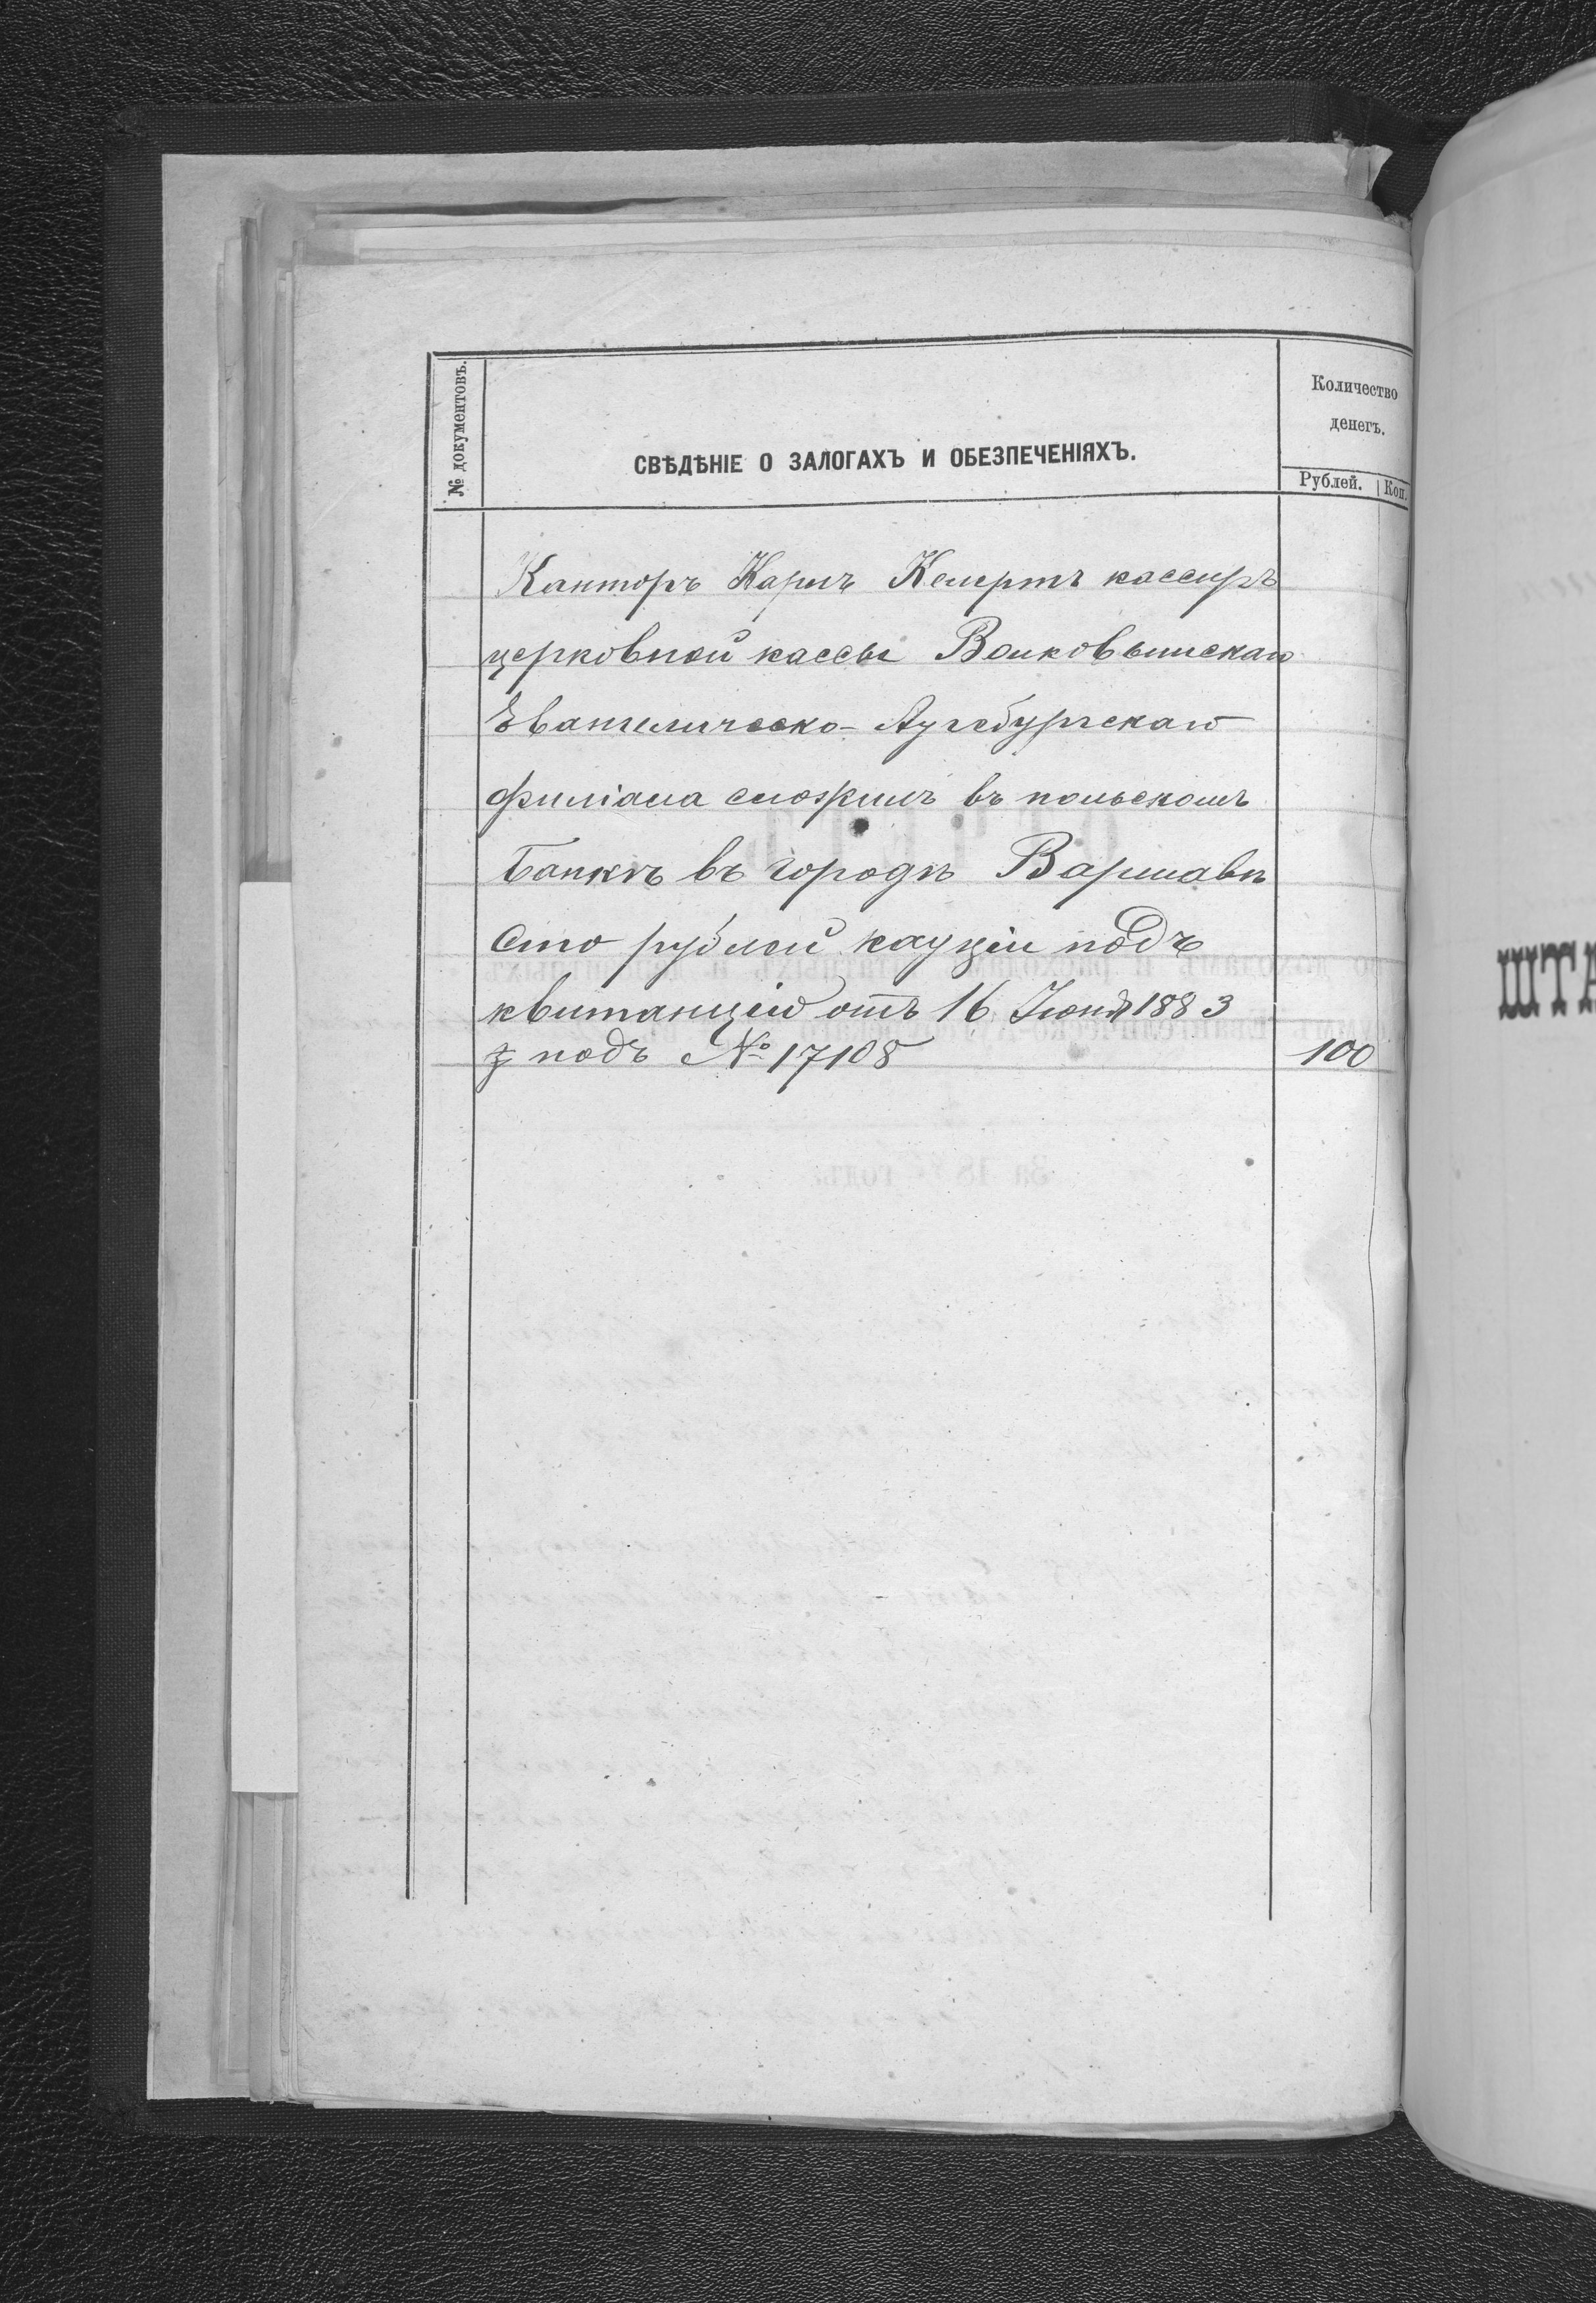 № документовъ.
СВѢДѢНІЕ О ЗАЛОГАХЪ И ОБЕЗПЕЧЕНІЯХЪ.
Количество
денегъ.
Рублей.
Коп.
Канторъ Карлъ Келертъ кассиръ
церковной кассы Волковышскаго
Евангелическо-Аугсбургскаго
филіала сложилъ въ польскомъ
Банкѣ въ городѣ Варшавѣ
Сто рублей кауціи подъ
квитанцією отъ 16 Іюня 1883
подъ № 17108
100
ШТА